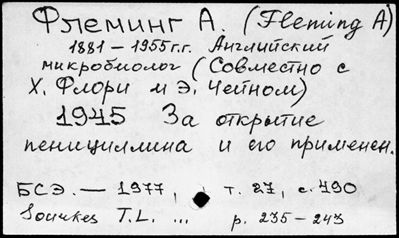 Флеминг А. (Fleming A)
1881 – 1955 г.г. Английский
микробиолог (Совместно с
Х. Флори и Э. Чейном)
1945 За открытие
пенициллина и его применен.
БСЭ. — 1977, т. 27, с. 490
Sourkes T.L. ... p. 235 – 243